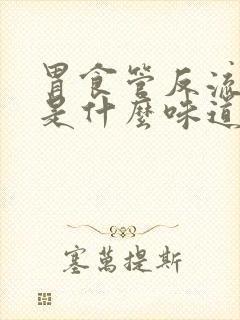 胃食管反流
是什麼味道
塞萬提斯